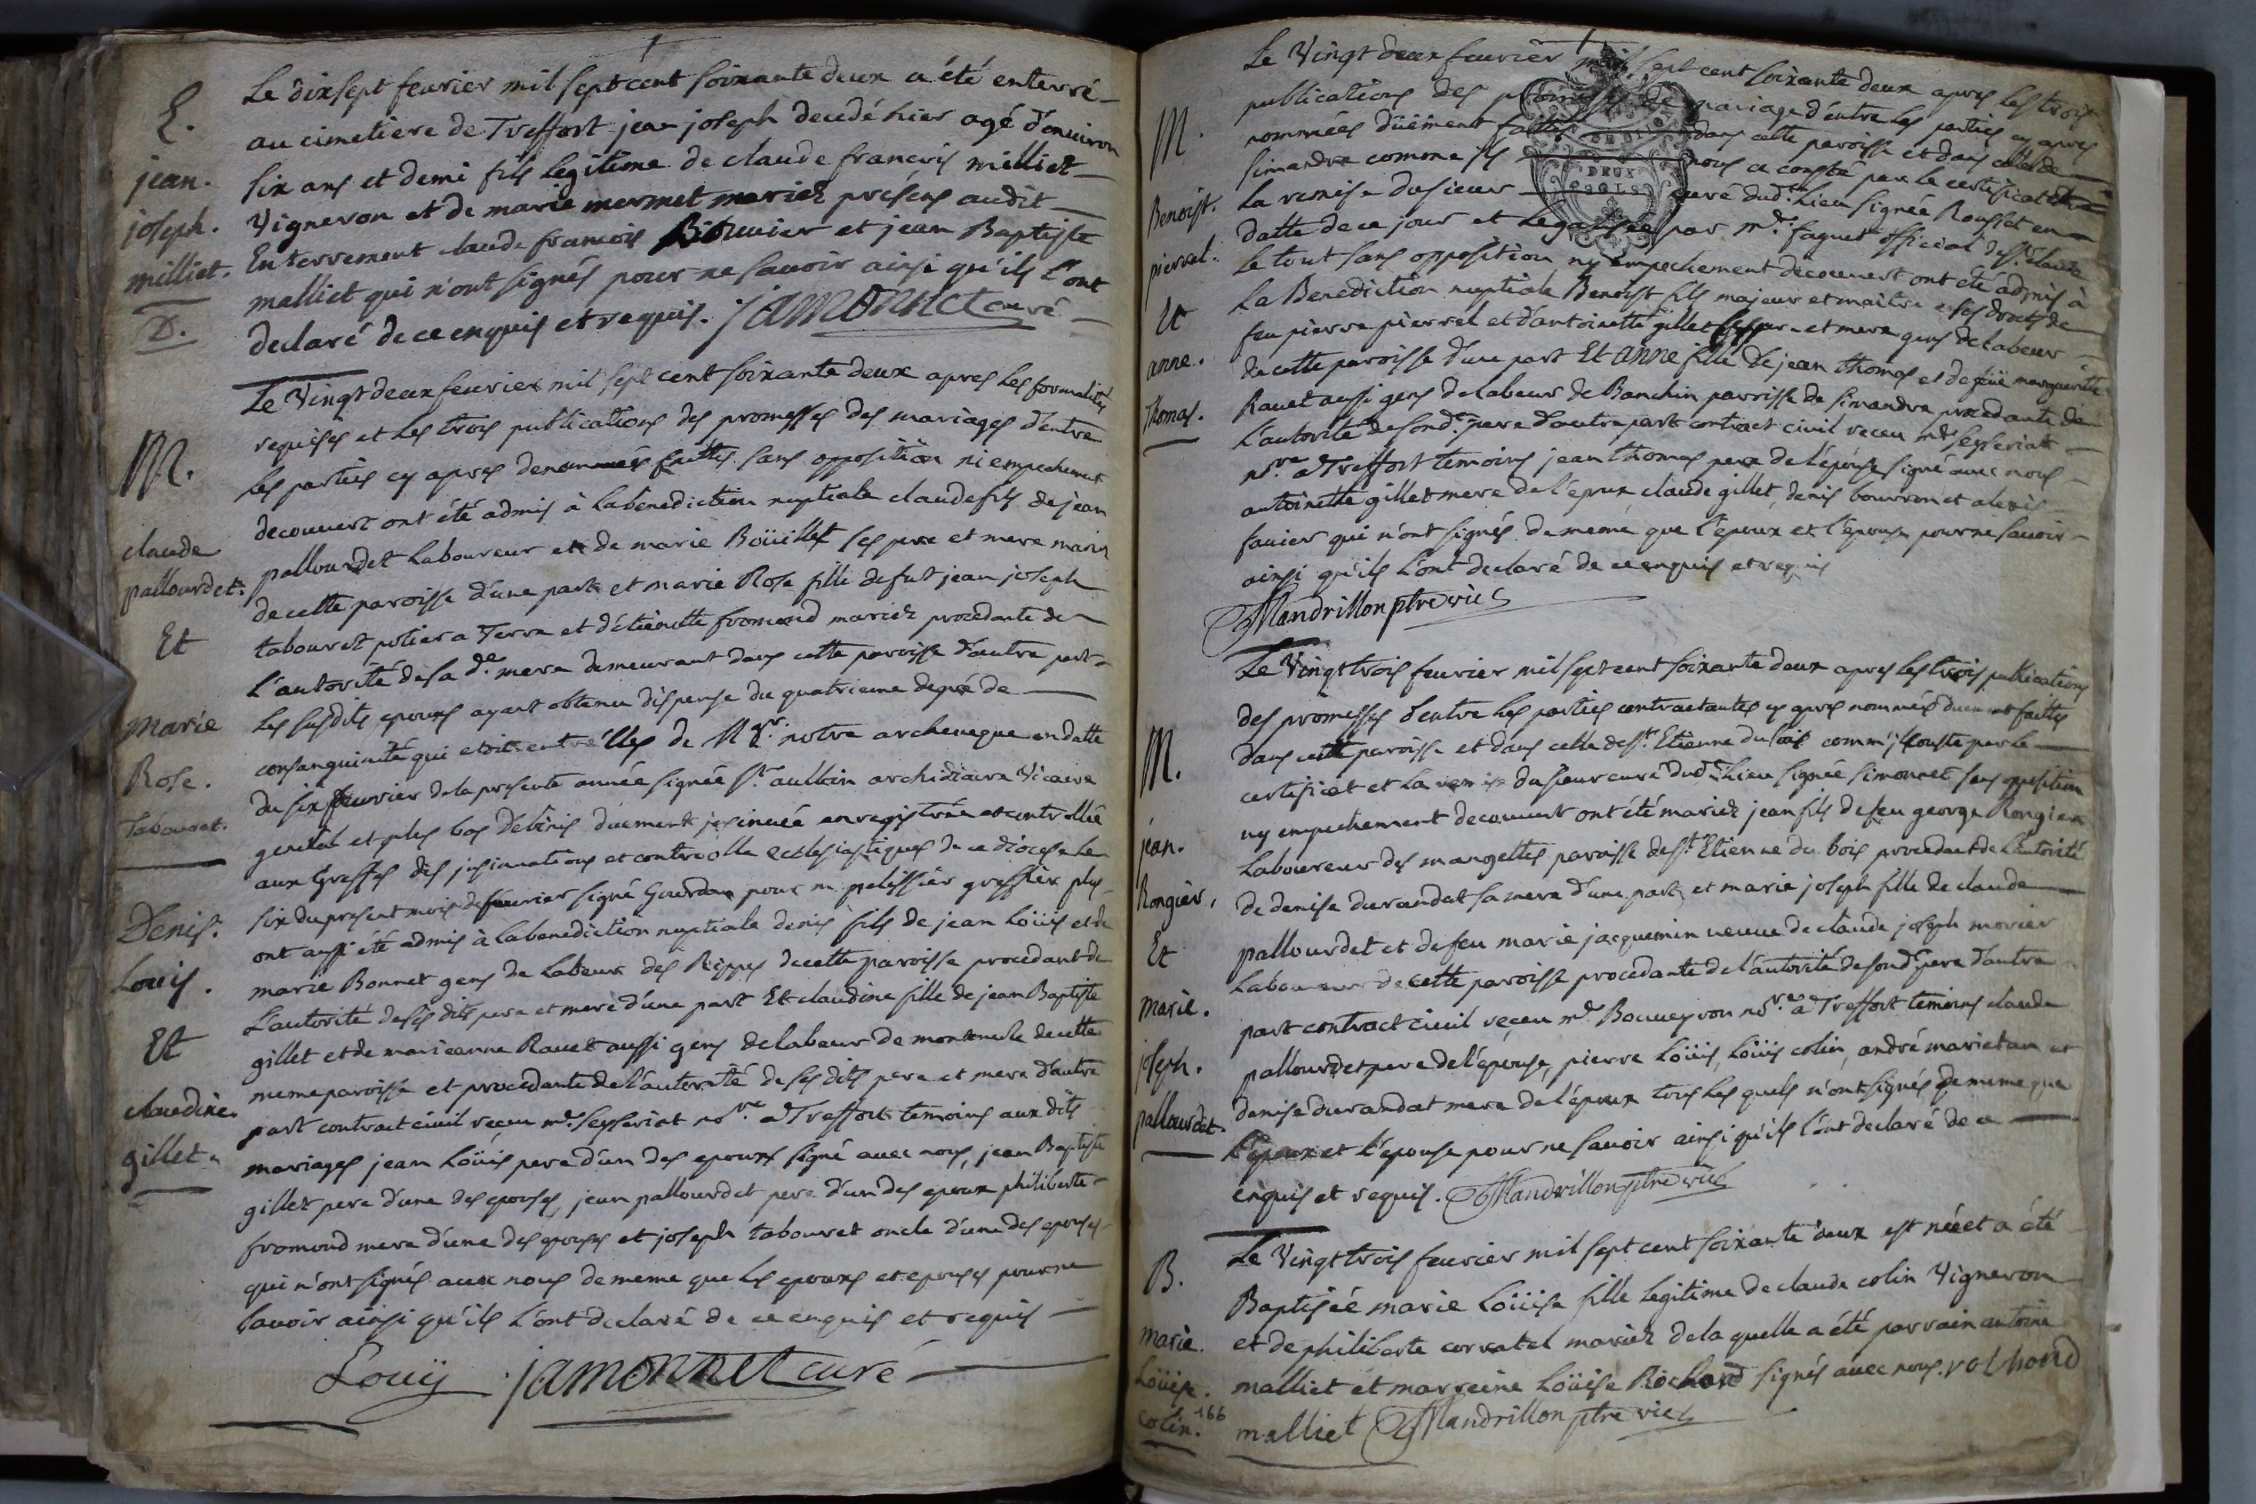 E.
jean.
joseph.
milliet.
D.
Le dixsept feurier mil sept cent soixante deux a été enterré
au cimetiere de Treffort jean joseph decedé hier agé d'enuiron
six ans et demi fils legitime de claude francois milliet
Vigneron et de marie mermet mariez présens audit
Enterrement claude francois et jean Baptiste
malliet qui n'ont signés pour ne sauoir ainsi qu'ils l'ont
declaré de ce enquis et requis. jamonnet curé
M.
claude
pallourdet.
Et
marie
Rose.
Tabouret.
Denis.
Louis.
Et
claudine
gillet.
Le Vingt deux feurier mil sept cent soixante deux apres les formalités
requises et les trois publications des promesses des mariages d'entre
les parties cy apres denommés faittes sans opposition ni empechement
decouuert ont été admis à la benediction nuptiale claude fils de jean
pallourdet Laboureur et de marie Boüillet ses pere et mere mariez
de cette paroisse d'une part et marie Rose fille de fut jean joseph
tabouret potier a Terre et d'étienette fromond mariez procedante de
l'autorité de sa de. mere demeurant dans cette paroisse d'autre part
les susdits epoux ayant obtenu dispense du quatrieme degré de
consanguinité qui etoit entre elles de Mgr. notre archeueque en datte
du six feurier de la presente année signée st. aulbin archidiacre Vicaire
general et plus bas debinis duement jnsinuée enregistrée et controllée
aux Greffes des jnsinuations et controolle ecclesiastiques de ce diocese le
six du present mois de feurier signé Gourdan pour m. pelissier greffier plus
ont aussi été admis à la benediction nuptiale denis fils de jean Loüis et de
marie Bonnet gens de Labeur des Rippes de cette paroisse procedant de
L'autorité de ses dits pere et mere d'une part Et claudine fille de jean Baptiste
gillet et de marieanne Rauet aussi gens de labeur de montmerle de cette
meme paroisse et procedante de l'autorité de ses dits pere et mere d'autre
part contract ciuil receu me. seyseriat nore. a Treffort temoins aux dits
mariages jean Loüis pere d'un des epoux signé auec nous, jean Baptiste
gillet pere d'une des epouses, jean pallourdet pere d'un des epoux philiberte
fromond mere d'une des epouses et joseph tabouret oncle d'une des epouses
qui n'ont signés auec nous de meme que les epoux et epouses pour ne
sauoir ainsi qu'ils l'ont declaré de ce enquis et requis
Louÿ jamonnet curé
M.
Benoist.
pierrel.
Et
anne.
Thomas.
Le Vingt deux feurier mil sept cent soixante deux apres les trois
publications des promesses de mariage d'entre les parties cy apres
nommées düement faittes dans cette paroisse et dans celle de
simandre comme il nous a consté par le certificat et
la remise du sieur curé dudt. Lieu signée Rousset en
datte de ce jour et legalisée par mr. faguet official de st. claude
Le tout sans opposition ny empechement decouuert ont été admis à
La Benediction nuptiale Benoist fils majeur et maitre de ses droits de
feu pierre pierrel et d'antoinette gillet ses pere et mere gens de labeur
de cette paroisse d'une part Et anne fille de jean thomas et de feüe marguerite
Rauet aussi gens de labeur de Banchin paroisse de simandre procedante de
L'autorité de sondt. pere d'autre part contract ciuil receu me. seyseriat
nore. a Treffort temoins jean thomas pere de l'épouse signé auec nous
antoinette gillet mere de l'epoux claude gillet, denis bourron et alexis
fauier qui n'ont signés de meme que l'epoux et l'epouse pour ne sauoir
ainsi qu'ils l'ont declaré de ce enquis et requis
Mandrillon ptre vic
M.
jean.
Rongier.
Et
marie.
joseph.
pallourdet.
Le Vingt trois feurier mil sept cent soixante deux apres les trois publications
des promesses d'entre les parties contractantes cy apres nommés duement faittes
dans cette paroisse et dans celle de st. Etienne du bois comm'il conste par le
certificat et la remise du sieur curé dudt. lieu signée simonnet sans opposition
ny empechement decouuert ont été mariez jean fils de feu george Rongier
Laboureur des mangettes paroisse de st. Etienne du bois procedant de L'autorité
de denise durandat sa mere d'une part, et marie joseph fille de claude
pallourdet et de feu marie jacquemin veuue de claude joseph morier
Laboureur de cette paroisse procedante de l'autorité de sondt. pere d'autre
part contract ciuil receu me. Bocueyron nore. a Treffort temoins claude
pallourdet pere de l'epouse, pierre Loüis, Loüis colin, andré marietan et
denise durandat mere de l'époux tous les quels n'ont signés de meme que
L'epoux et l'epouse pour ne sauoir ainsi qu'ils l'ont declaré de ce
enquis et requis. Mandrillon ptre vic
B.
marie.
Loüise.
colin.
166
Le Vingt trois feurier mil sept cent soixante deux est née et a été
Baptisée marie Loüise fille legitime de claude colin Vigneron
et de philiberte corratel mariez de la quelle a été parrain antoine
malliet et marreine Loüise Rochard signés auec nous.
malliet Mandrillon ptre vic
DEUX
SOLS